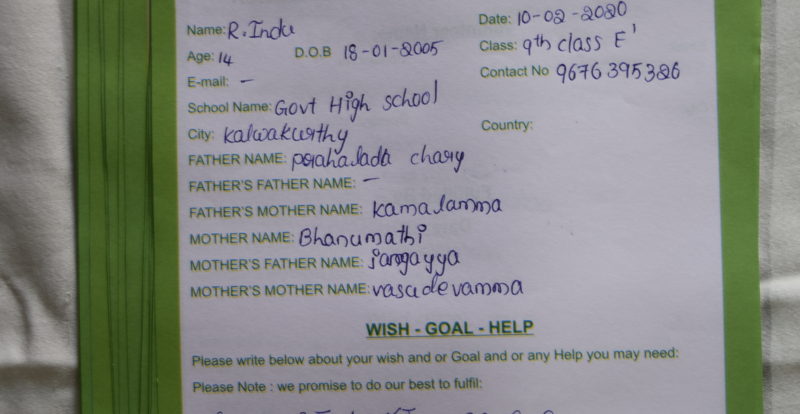 Name: R. Indu Date: 10-02-2020
Age: 14 D.O.B 18-01-2005 Class: 9th class E'
E-mail: –
Contact No 9676395326
School Name: Govt High school
City: kalwakurthy Country:
FATHER NAME: prahalada chary
FATHER'S FATHER NAME: –
FATHER'S MOTHER NAME: kamalamma
MOTHER NAME: Bhanumathi
MOTHER'S FATHER NAME: jangayya
MOTHER'S MOTHER NAME: vasudevamma
WISH - GOAL - HELP
Please write below about your wish and or Goal and or any Help you may need:
Please Note : we promise to do our best to fulfil: